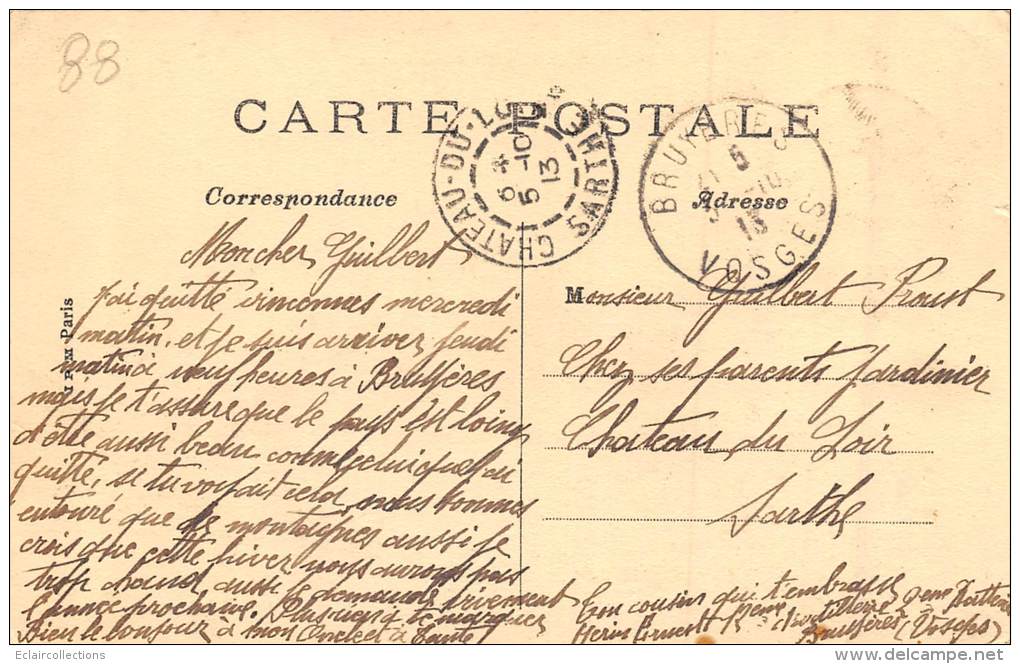 88
CARTE POSTALE
CHATEAU-DU-LOIR SARTHE
6 *
5 -10
13
BRUYERES VOSGES
5
13
Correspondance
Adresse
Mon cher Guilbert
j'ai quitté vincennes mercredi
matin, et je suis arriver jeudi
matin à neuf heures à Bruyères
mais je t'assure que le pays est loing
d'être aussi beau comme celui que j'ai
quitté, si tu voyait cela, nous sommes
entouré que de montagnes aussi je
crois que cette hiver nous aurons pas
trop chaud aussi je demande vivement
l'année prochaine. Plus rien à te marquer
Bien le bonjour à mon Oncle et à Tante
Monsieur Guilbert Proust
Chez ses parents Jardinier
Chateau du Loir
Sarthe
Ton cousin qui t'embrasse
2eme Batterie
Bruyères (Vosges)
Paris
Eclaircollections
delcampe.net